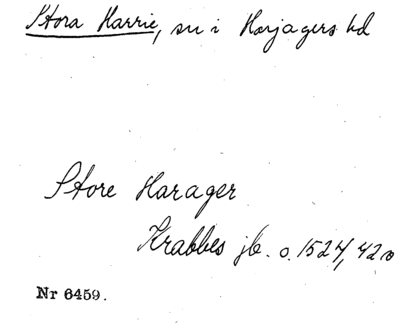 Stora Harrie, sn i Harjagers hd
Store Harager
Krabbes jb. o. 1524, 420
Nr 6459.